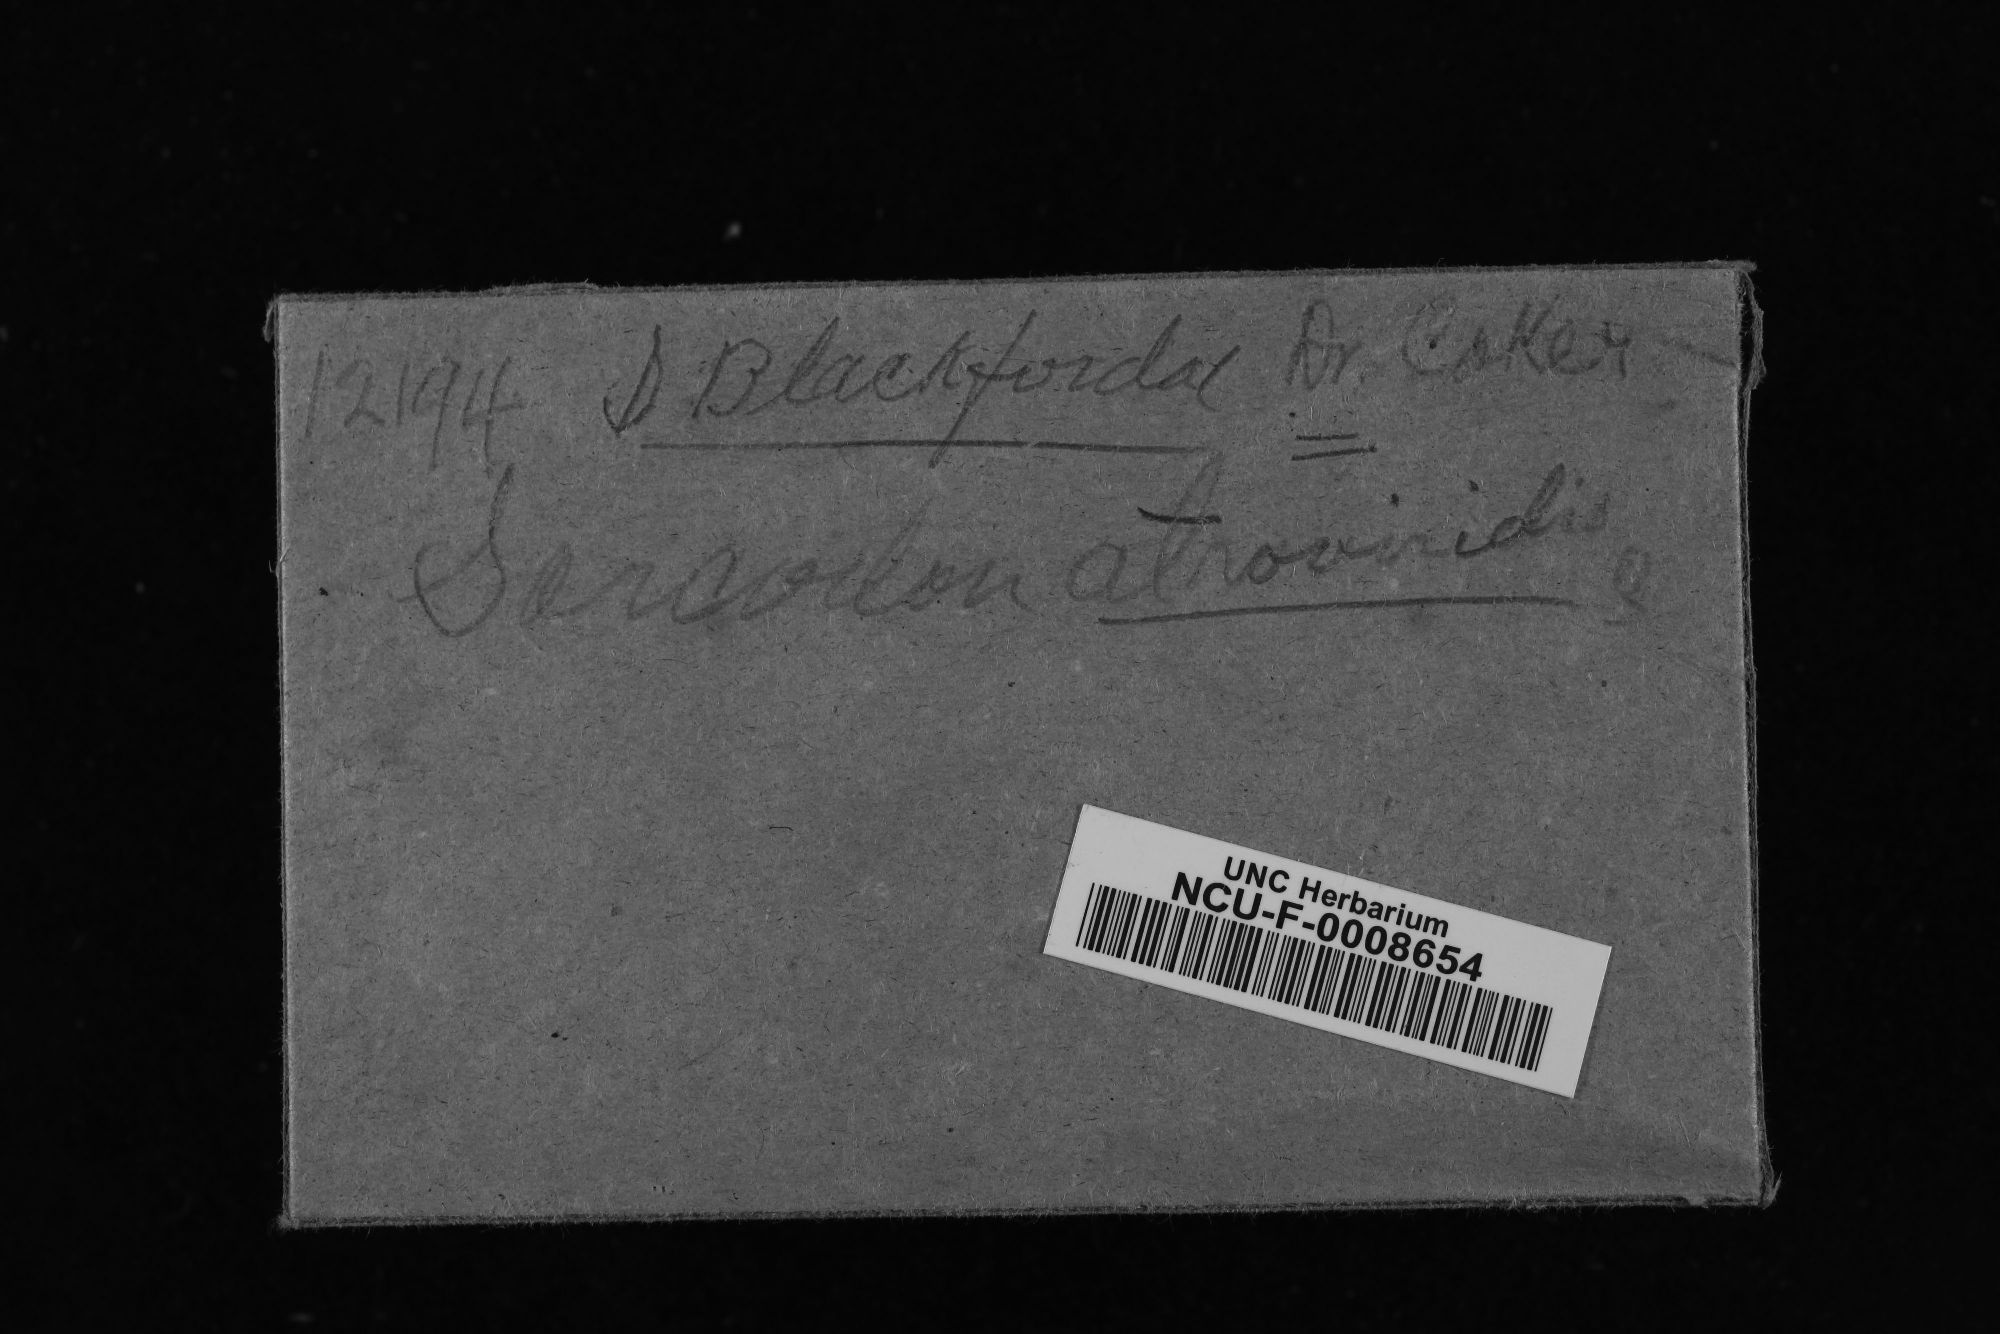 12194 S Blackfordae Dr. Coker
=
Sarcodon atroviridis
UNC Herbarium
NCU-F-0008654